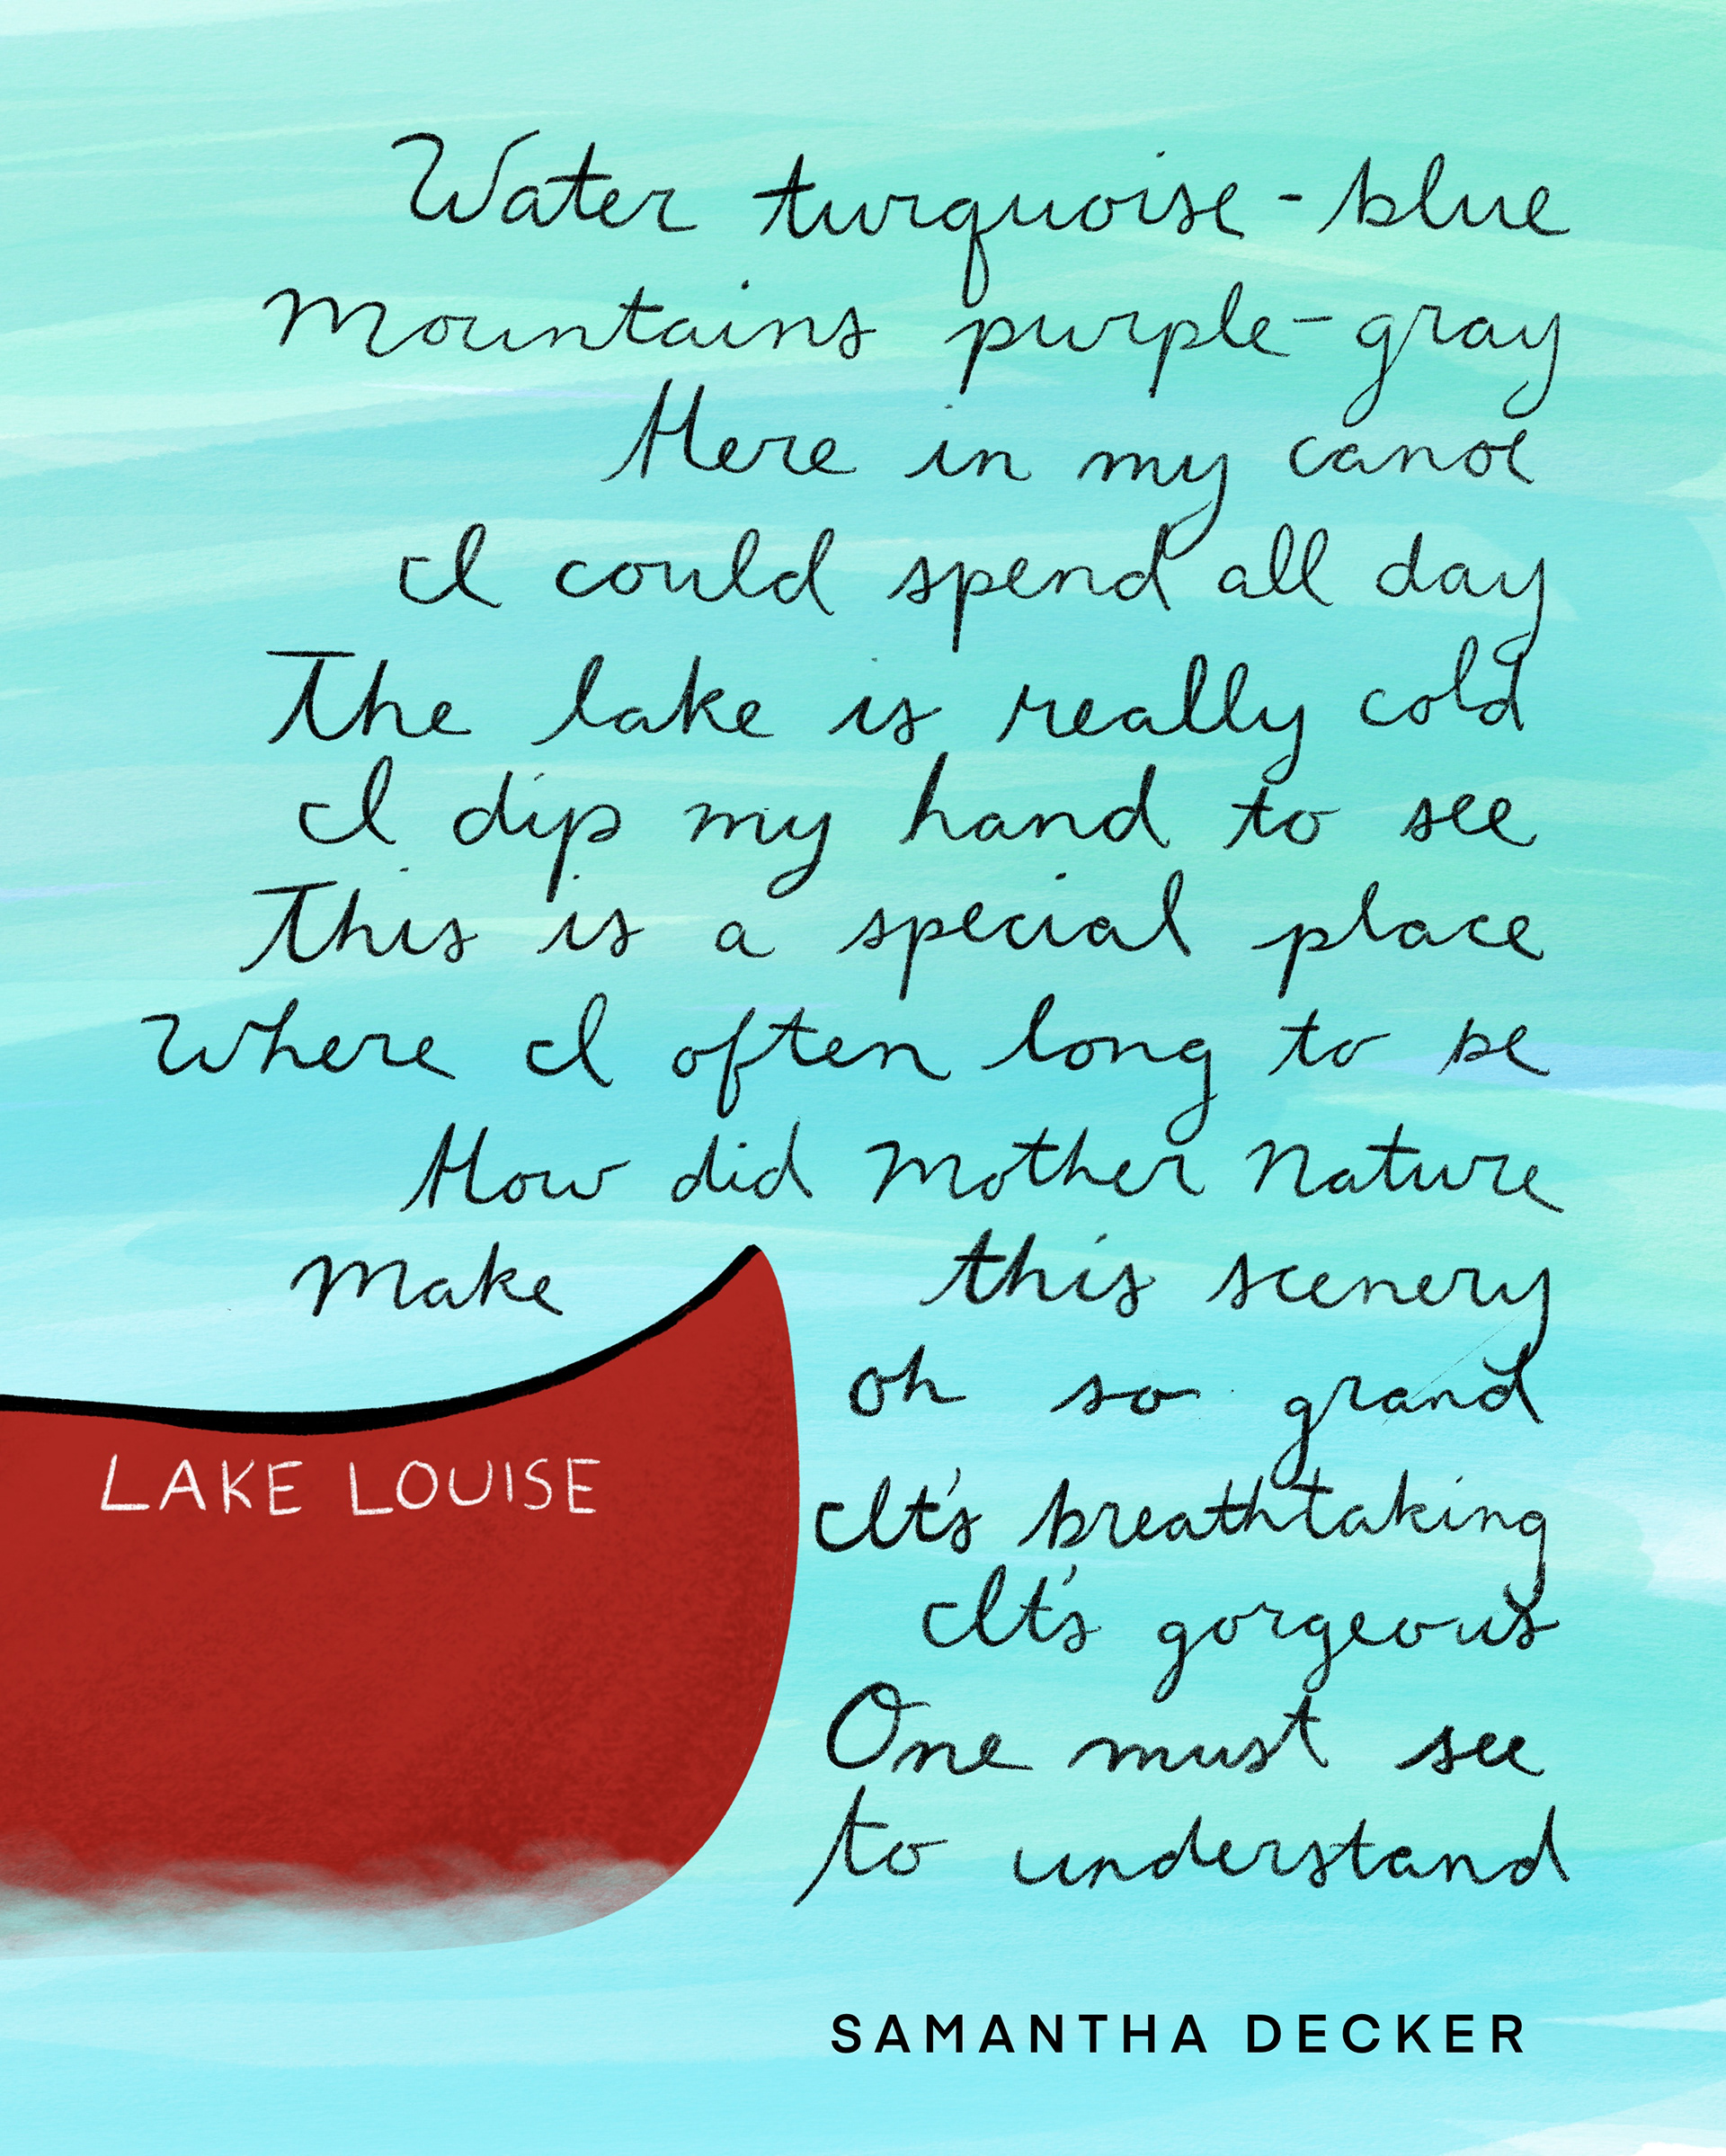 Water turquoise-blue
Mountains purple-gray
Here in my canoe
I could spend all day
The lake is really cold
I dip my hand to see
This is a special place
Where I often long to be
How did Mother Nature
Make this scenery
oh so grand
LAKE LOUISE
It's breathtaking
It's gorgeous
One must see
to understand
SAMANTHA DECKER